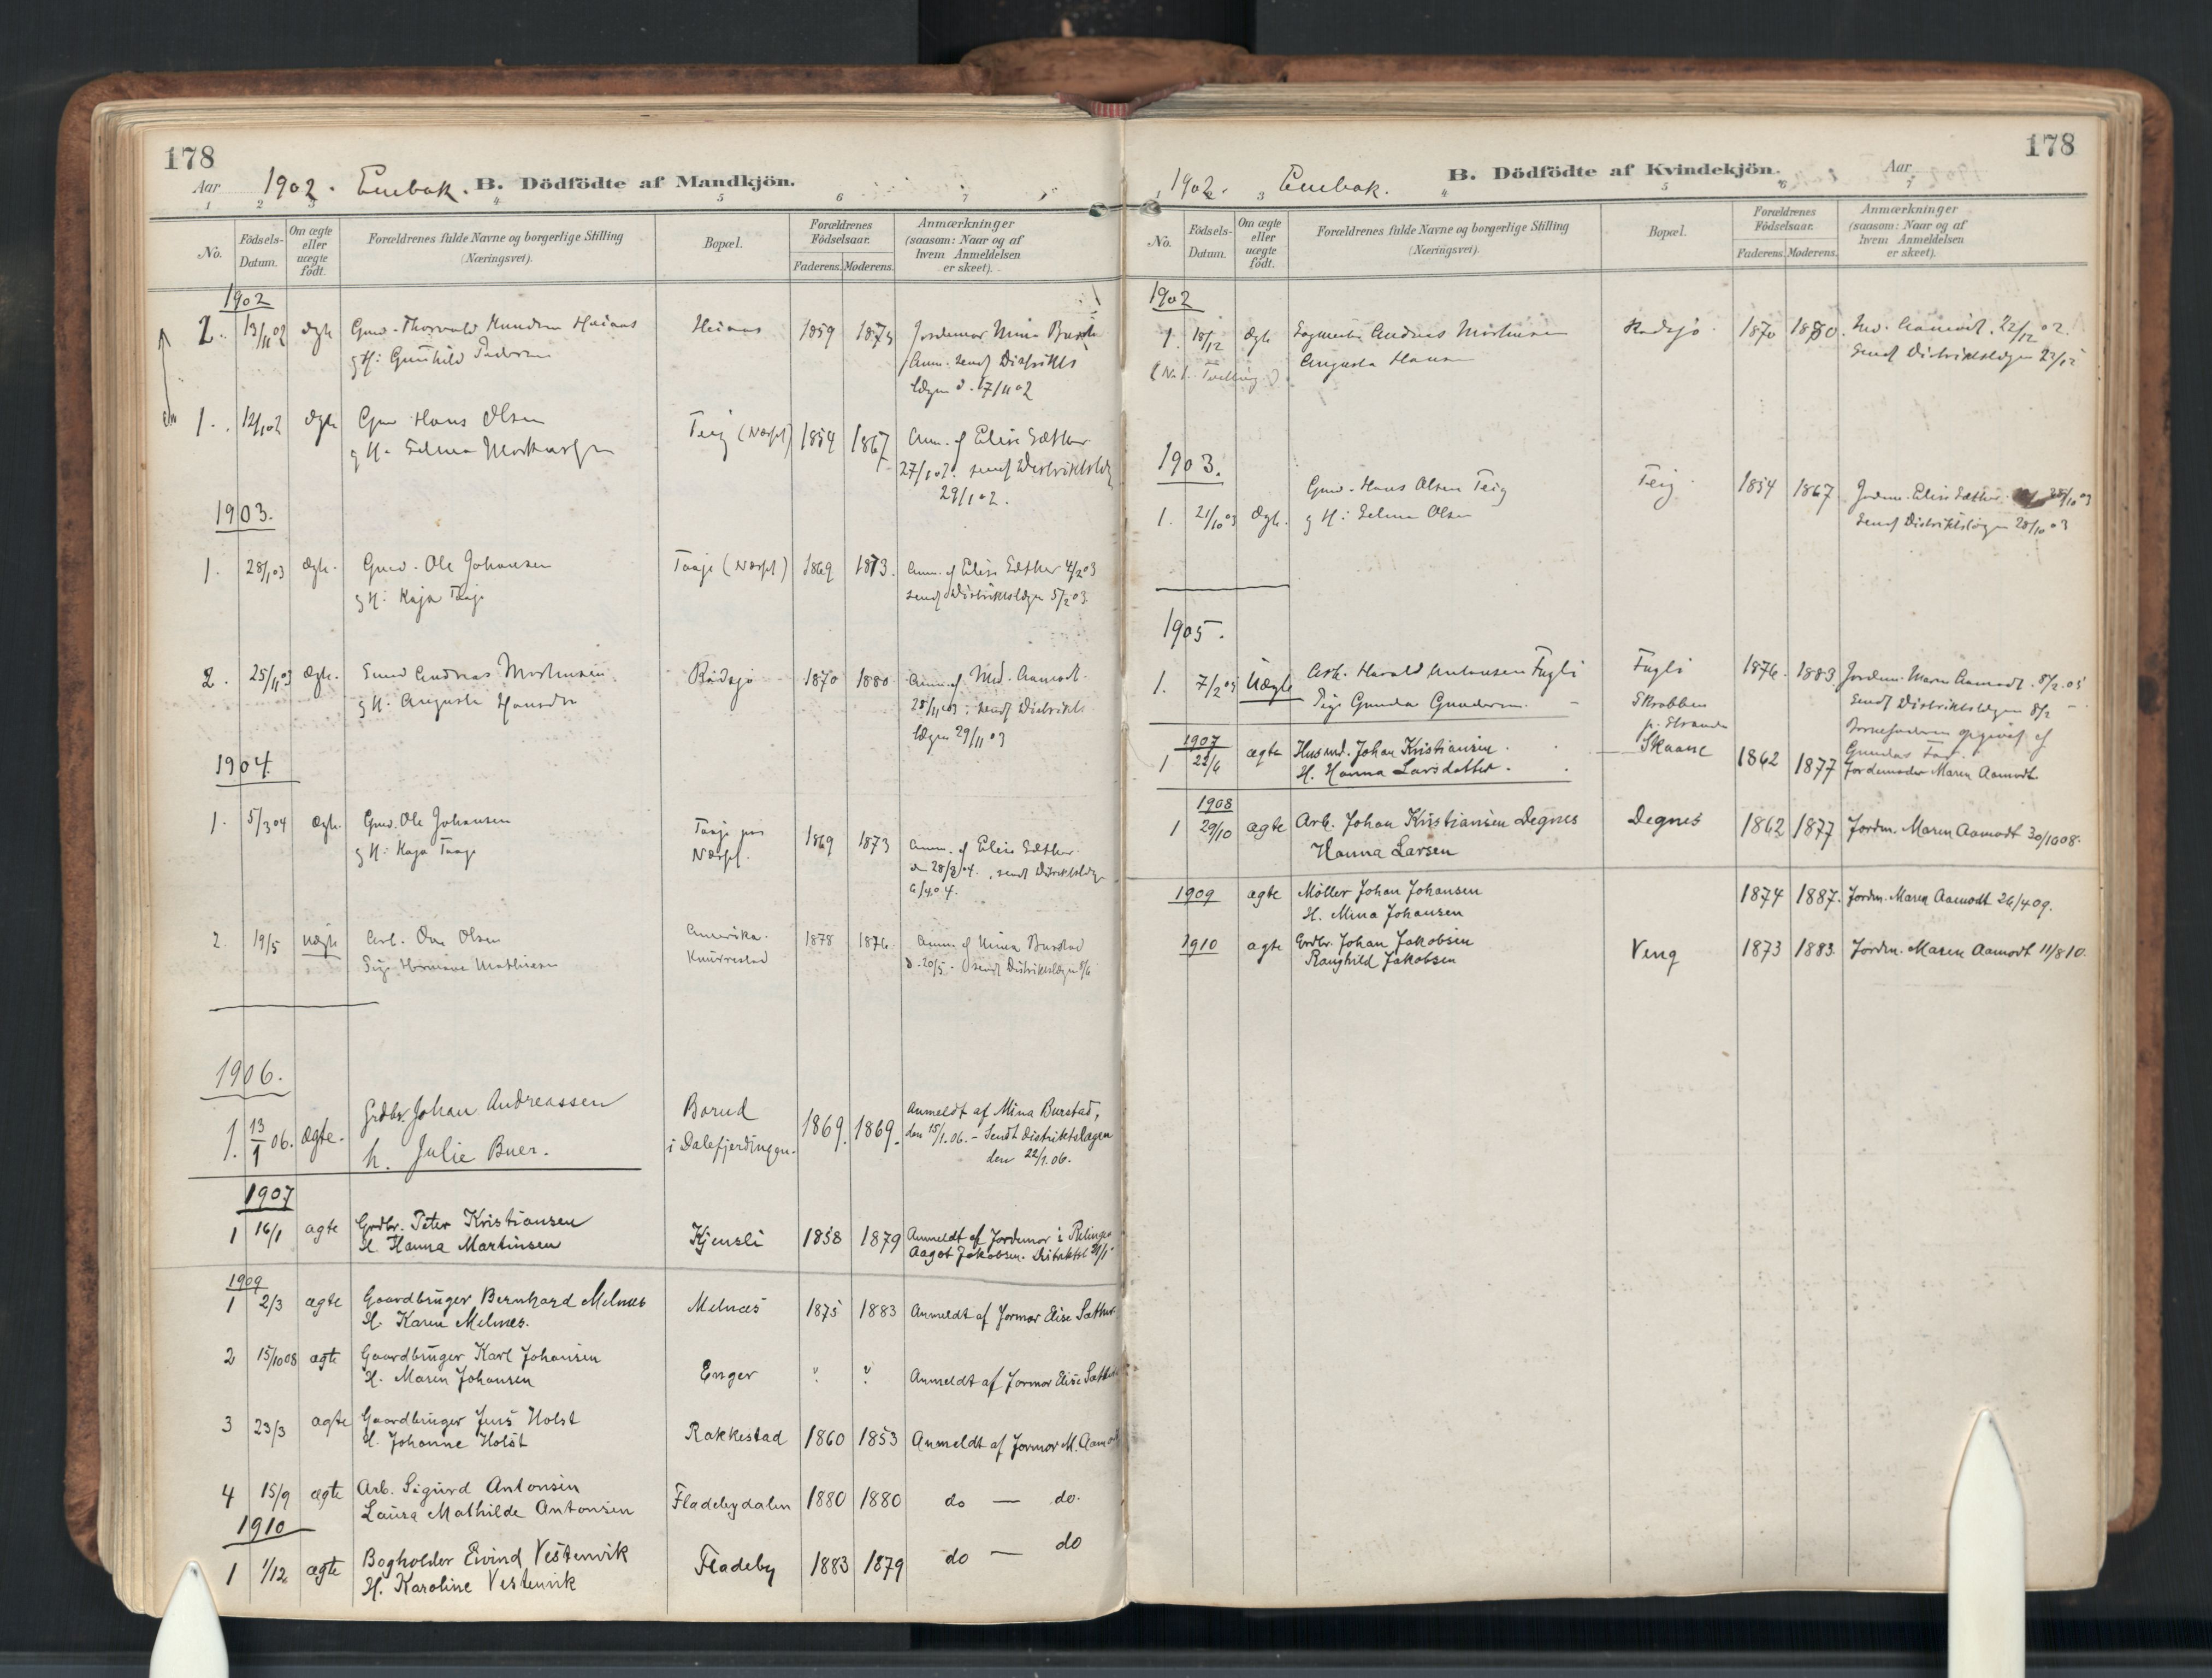 178
Aar 1902. Enebak. B. Dödfödte af Mandkjön.
1 2 3 4 5 6 7
No.
Födsels-Datum.
Om ægte eller uægte födt.
Forældrenes fulde Navne og borgerlige Stilling (Næringsvei).
Bopæl.
Forældrenes Födselsaar.
Faderens. Moderens.
Anmærkninger (saasom: Naar og af hvem Anmeldelsen er skeet).
1902
2. 13/11 02 ægte Gmd. Thorvald Knudsen 1859 1875 Jordemor Mina
g H: Gunhild Pedersen Anm. sendt Distrikts
lægen d. 17/11 02
1. 12/1 02 ægte Gmd Hans Olsen Teig (Næspt) 1854 1867 Anm. af Elise Sæther
g H. Selma 27/1 02. sendt Distriktslæg
29/1 02.
1903.
1. 28/1 03 Ægte. Gmd. Ole Johansen Taaje (Næspt) 1869 1873. Anm. af Elise Sæther 4/2 03
g H: Kaja Taaje sendt Distriktslægen 5/2 03
2. 25/11 03 Ægte. Andreas Morthinsen Rådsjø 1870 1880 Anm. af Md. Aamodt
g H: Augusta Hansdtr 28/11 03; sendt Distrikts
lægen 29/11 03
1904.
1. 5/3 04 Ægte. Gmd. Ole Johansen Taaje 1869 1873 Anm. af Elise Sæther
g H: Kaja Taaje Næspt. sendt Distriktslæg
2. 19/5 uægte Arb. Olsen Amerika. 1878 1876 Anm. af Mina Burstad
Pige Hermine Mathisen Knurrestad d. 20/5. sendt Distriktslægen
1906.
1. 13/1 06. Ægte. Grdbr. Johan Andreassen Borud 1869. 1869. Anmeldt af Mina Burstad,
h. Julie Buer. i Dalefjerdingen. den 15/1.06. - Sendt distriktslægen
den 22/1.06.
1907
1 16/1 ægte Grdbr. Peter Kristiansen Kjensli 1858 1879 Anmeldt af Jordemor i
H. Hanna Martinsen Aagot Jakobsen.
1909
1 2/3 ægte Gaardbruger Bernhard Melnes Melnæs 1875 1883 Anmeldt af Jormor Elise Sæther
H. Karen Melnes.
2 15/10 08 ægte Gaardbruger Karl Johansen Enger ? ? Anmeldt af Jormor Elise Sæther
H. Maren Johansen
3 23/3 ægte Gaardbruger Jens Holst Rakkestad 1860 1853 Anmeldt af Jormor M. Aamodt
H. Johanne Holst
4 15/9 ægte Arb. Sigurd Antonsen Fladebydalen 1880 1880 do — do.
Laura Mathilde Antonsen
1910
1 1/12 ægte Bogholder Eivind Vestenvik Fladeby 1883 1879 do — do
H. Karoline Vestenvik
178
1902. Enebak. B. Dödfödte af Kvindekjön. Aar
1 2 3 4 5 6 7
No.
Födsels-Datum.
Om ægte eller uægte födt.
Forældrenes fulde Navne og borgerlige Stilling (Næringsvei).
Bopæl.
Forældrenes Födselsaar.
Faderens. Moderens.
Anmærkninger (saasom: Naar og af hvem Anmeldelsen er skeet).
1902
1. 18/12 Ægte Andreas Morthinsen Radsjø 1870 1880. Md. Aamodt. 22/12 02.
(No 1. Tvilling) Augusta Hansen Sendt Distriktslægen 23/12
1903.
Gmd. Hans Olsen Teig Teig 1854 1867 Jordm. Elise Sæther. 28/10 03
1. 21/10 03 Ægte. g H: Selma Olsen Sendt Distriktslægen 28/10 03
1905.
1. 7/2 05 Uægte Arb. Harald Antonsen Fugli Fugli 1876. 1883. Jordm. Maren Aamodt. 8/2. 05
Pige Gunda Gundersen. Skrabben Sendt Distriktslægen 8/2 –
p. Stranda Barnefaderen opgivet af
Gundas Far.
1907
1 22/6 ægte Husmd. Johan Kristiansen. Skaane 1862 1877 Jordemoder Maren Aamodt
H. Hanna Larsdatter.
1908
1 29/10 ægte Arb. Johan Kristiansen Degnes Degnes 1862 1877 Jordm. Maren Aamodt 30/10 08.
Hanna Larsen
1909 ægte Møller Johan Johansen 1874 1887. Jordm. Maren Aamodt 26/4 09.
H. Mina Johansen
1910 ægte Grdbr. Johan Jakobsen Veng 1873 1883. Jordm. Maren Aamodt 11/8 10.
Ranghild Jakobsen